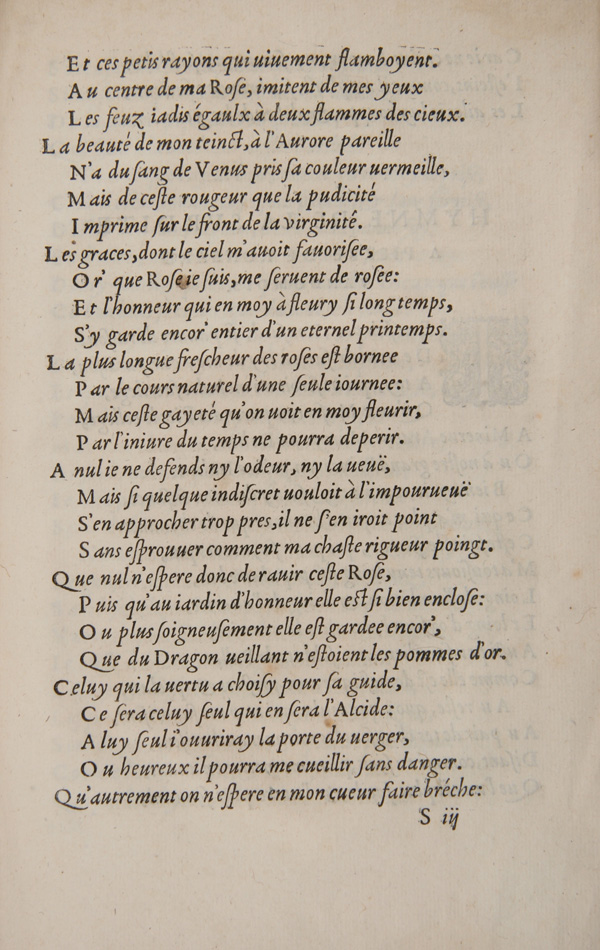 Et ces petis rayons qui uiuement flamboyent.
Au centre de ma Roſe, imitent de mes yeux
Les feuz iadis égaulx à deux flammes des cieux.
La beauté de mon teinct, à l'Aurore pareille
N'a du ſang de Venus pris ſa couleur uermeille,
Mais de ceſte rougeur que la pudicité
Imprime ſur le front de la virginité.
Les graces, dont le ciel m'auoit fauoriſee,
Or' que Roſe ie ſuis, me ſeruent de roſee:
Et l'honneur qui en moy à fleury ſi long temps,
S'y garde encor' entier d'un eternel printemps.
La plus longue freſcheur des roſes eſt bornee
Par le cours naturel d'une ſeule iournee:
Mais ceſte gayeté qu'on uoit en moy fleurir,
Par l'iniure du temps ne pourra deperir.
A nul ie ne defends ny l'odeur, ny la ueuë,
Mais ſi quelque indiſcret uouloit à l'impourueuë
S'en approcher trop pres, il ne ſ'en iroit point
Sans eſprouuer comment ma chaſte rigueur poingt.
Que nul n'eſpere donc de rauir ceſte Roſe,
Puis qu'au iardin d'honneur elle eſt ſi bien encloſe:
Ou plus ſoigneuſement elle eſt gardee encor',
Que du Dragon ueillant n'eſtoient les pommes d'or.
Celuy qui la uertu a choiſy pour ſa guide,
Ce ſera celuy ſeul qui en ſera l'Alcide:
A luy ſeul i'ouuriray la porte du uerger,
Ou heureux il pourra me cueillir ſans danger.
Qu'autrement on n'eſpere en mon cueur faire bréche:
S iij